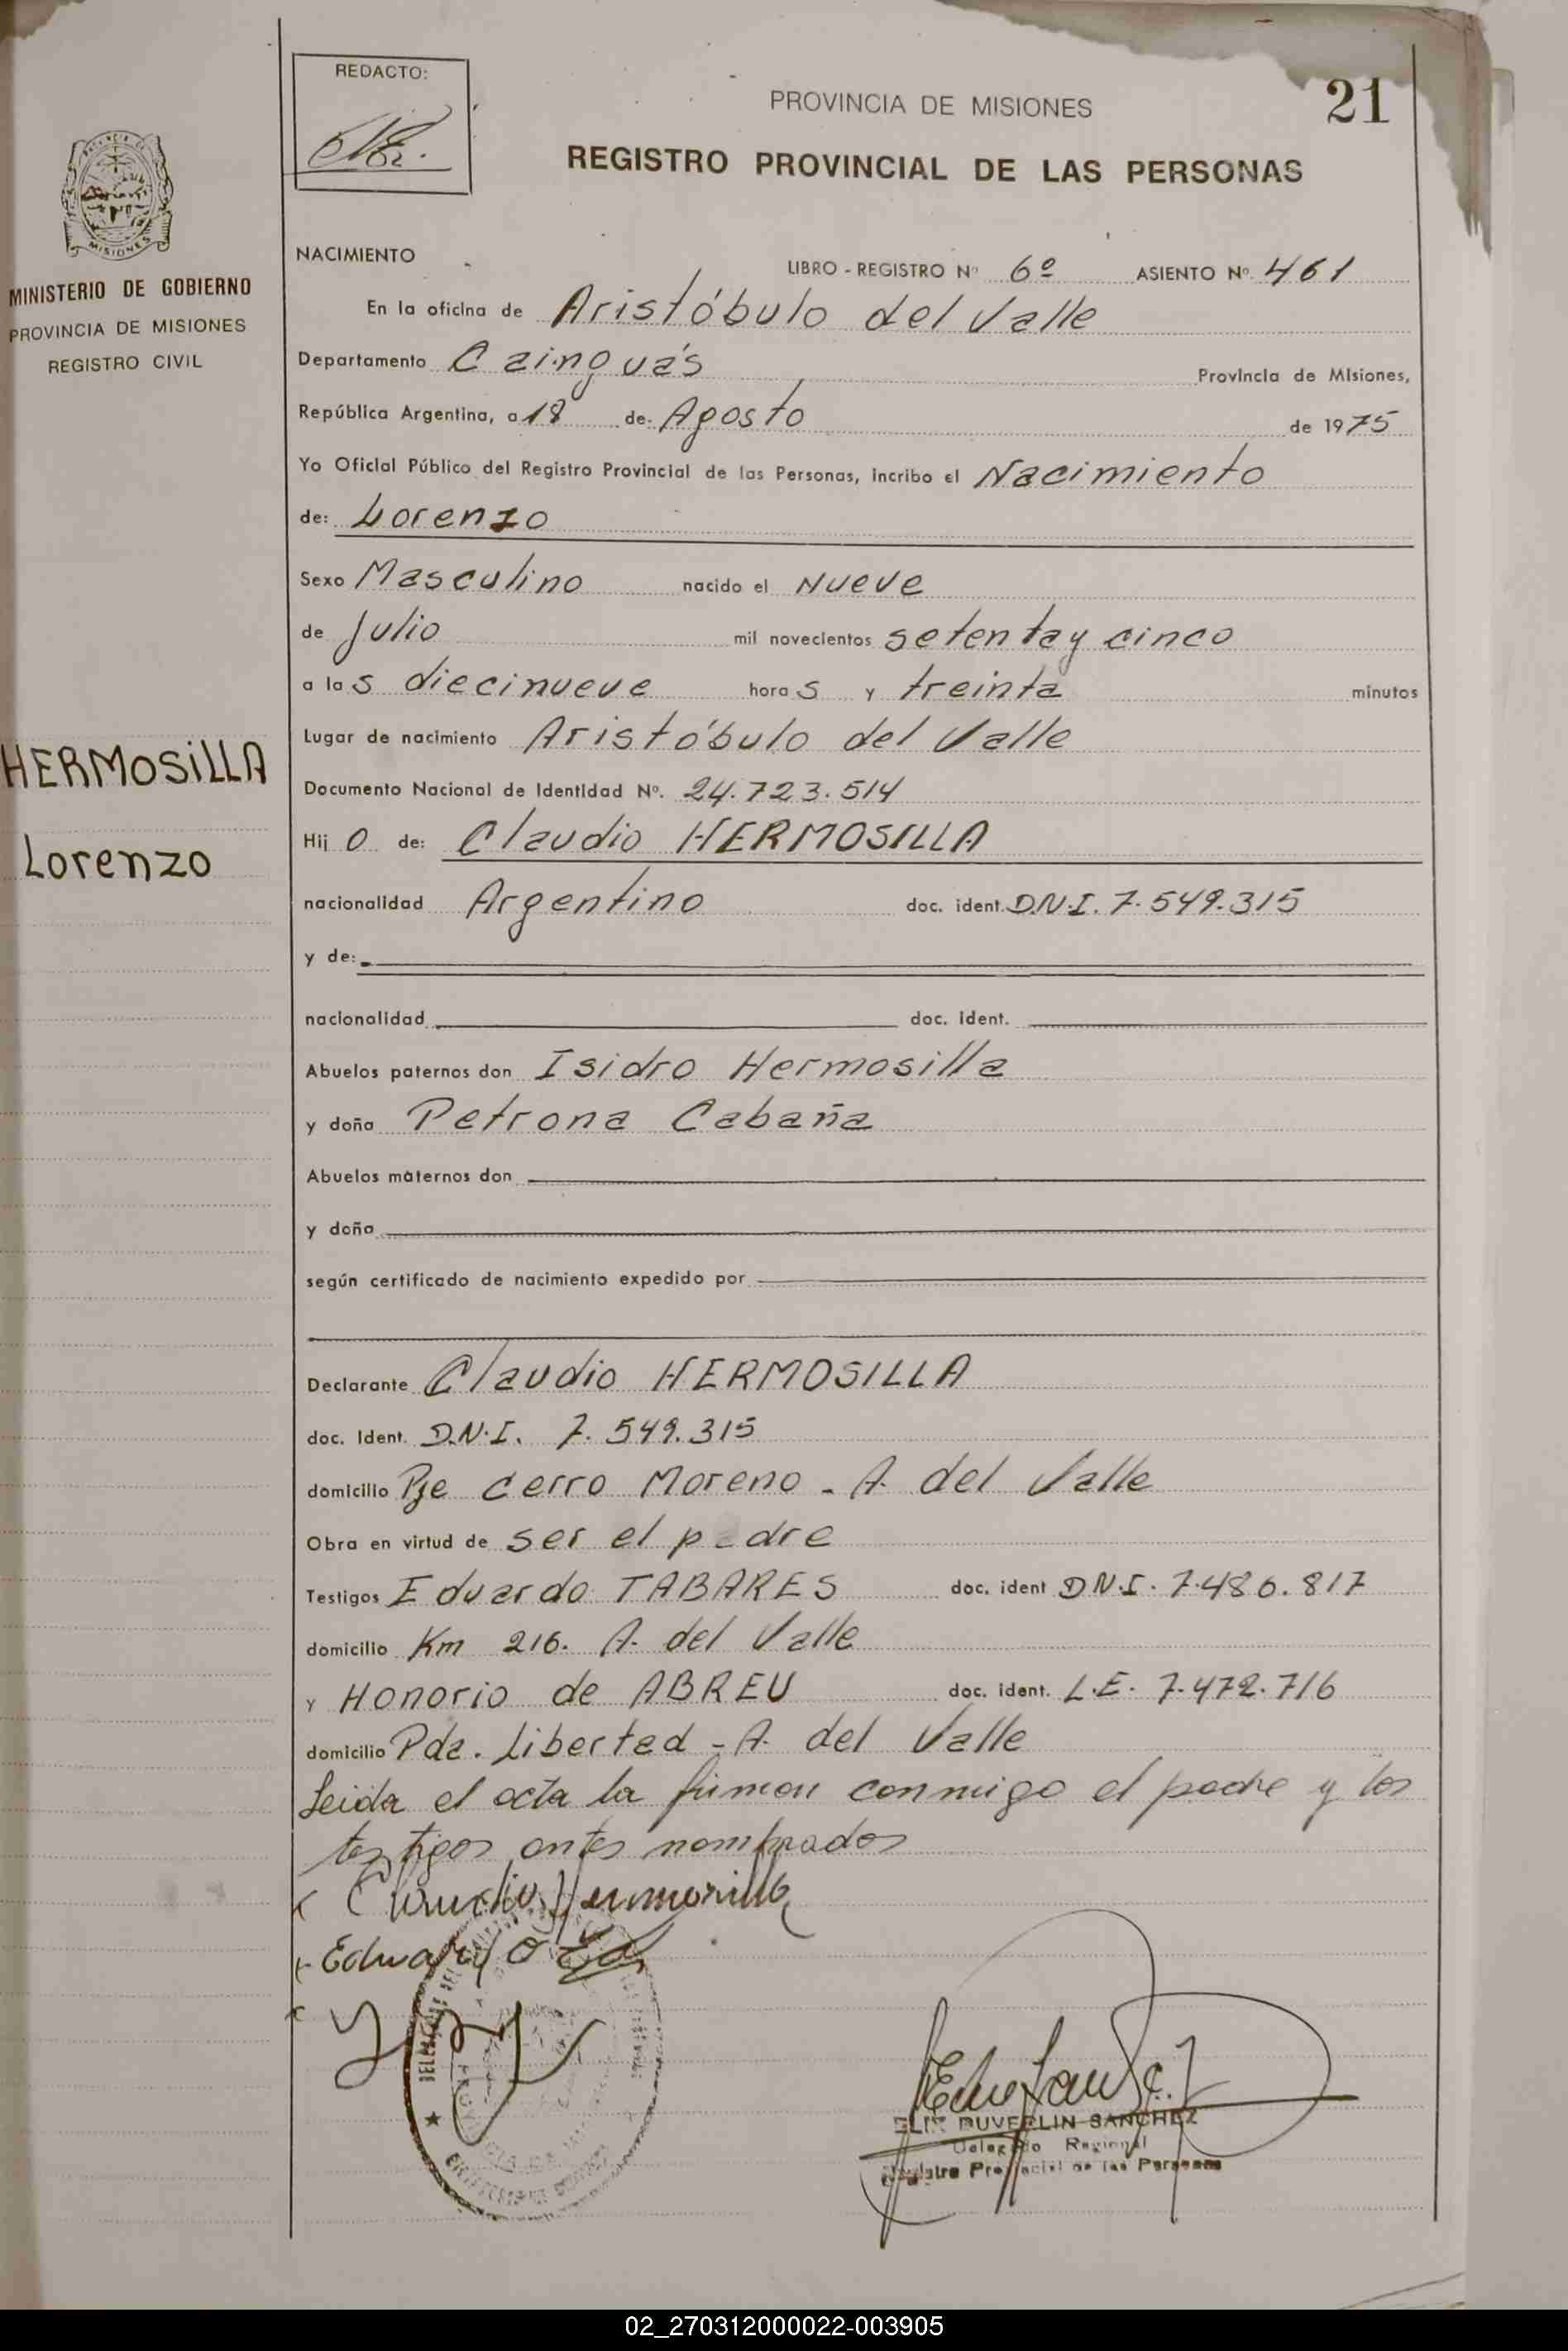 REDACTO:
PROVINCIA DE MISIONES
21
REGISTRO PROVINCIAL DE LAS PERSONAS
MISIONES
MINISTERIO DE GOBIERNO
PROVINCIA DE MISIONES
REGISTRO CIVIL
NACIMIENTO
LIBRO - REGISTRO Nº 6º ASIENTO Nº 461
En la oficina de Aristóbulo del Valle
Departamento Cainguás Provincia de Misiones,
República Argentina, a 18 de Agosto de 1975
Yo Oficial Público del Registro Provincial de las Personas, incribo el Nacimiento
de: Lorenzo
Sexo Masculino nacido el Nueve
de Julio mil novecientos setenta y cinco
a las diecinueve horas y treinta minutos
HERMOSiLLA
Lugar de nacimiento Aristóbulo del Valle
Documento Nacional de Identidad Nº. 24.723.514
Lorenzo
Hijo de: Claudio HERMOSILLA
nacionalidad Argentino doc. ident. D.N.I. 7.549.315
y de:
nacionalidad doc. ident.
Abuelos paternos don Isidro Hermosilla
y doña Petrona Cabaña
Abuelos maternos don
y doña
según certificado de nacimiento expedido por
Declarante Claudio HERMOSILLA
doc. Ident. D.N.I. 7.549.315
domicilio Pje Cerro Moreno - A. del Valle
Obra en virtud de ser el padre
Testigos Eduardo TABARES doc. ident D.N.I. 7.486.817
domicilio Km 216. A. del Valle
y Honorio de ABREU doc. ident. L.E. 7.472.716
domicilio Pda. Libertad - A. del Valle
Leida el acta la firman conmigo el padre y los
testigos antes nombrados
Claudio Hermosilla
Eduardo
DUVERLIN SANCHEZ
Delegado Regional
Registro Provincial de las Personas
02_270312000022-003905